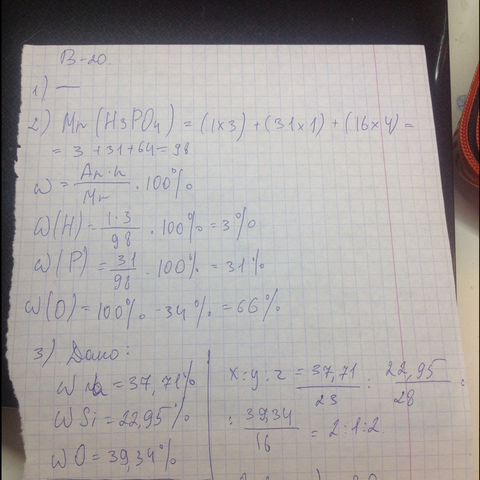 В-20.
1) —
2) Mr (H3PO4) = (1x3) + (31x1) + (16x4) =
= 3 + 31 + 64 = 98
ω = Ar·n / Mr · 100%
ω(H) = 1·3 / 98 · 100% = 3%
ω(P) = 31 / 98 · 100% = 31%
ω(O) = 100% - 34% = 66%
3) Дано:
ω Na = 37,71%
ω Si = 22,95%
ω O = 39,34%
x:y:z = 37,71 / 23 : 22,95 / 28 :
: 39,34 / 16 = 2:1:2